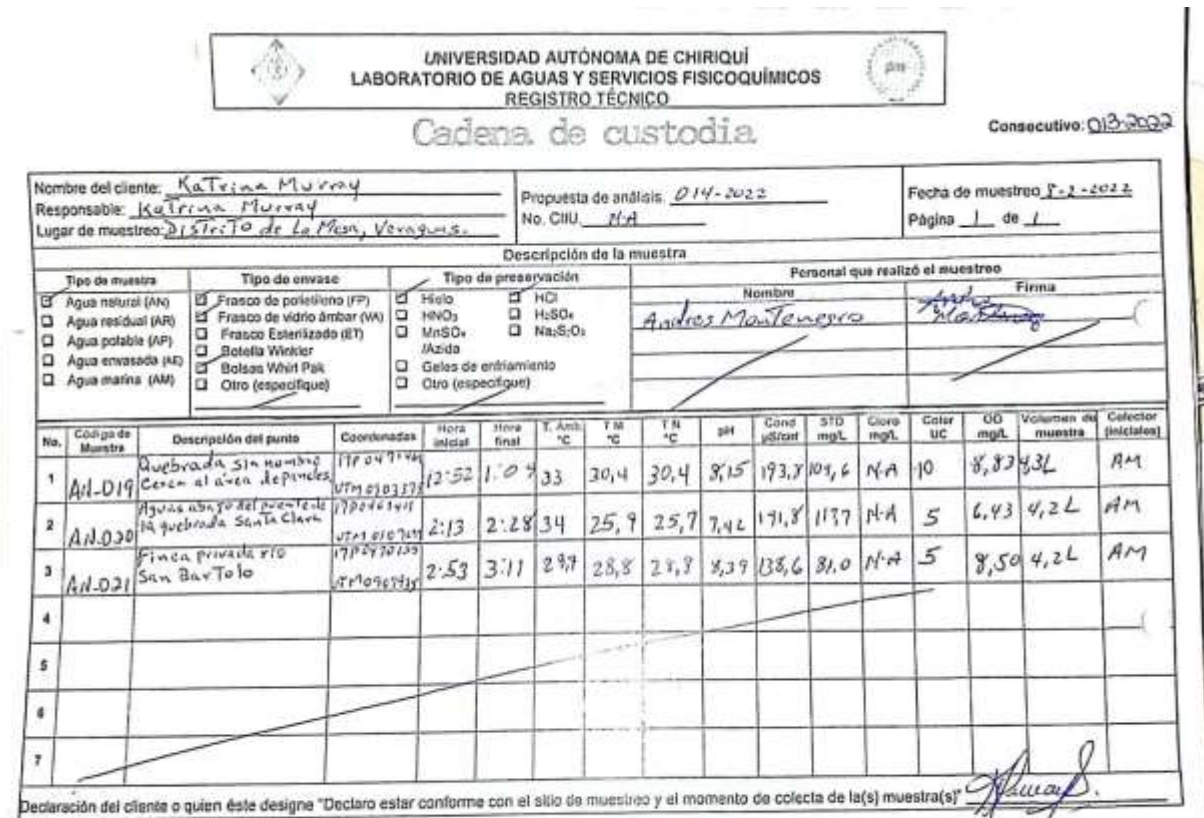 UNIVERSIDAD AUTÓNOMA DE CHIRIQUÍ
LABORATORIO DE AGUAS Y SERVICIOS FISICOQUÍMICOS
REGISTRO TÉCNICO
Cadena de custodia
Consecutivo: 013-2022
Nombre del cliente: KaTrina Murray
Responsable: KaTrina Murray
Lugar de muestreo: DisTriTo de La Mesa, Veraguas.
Propuesta de análisis. 014-2022
No. CIIU. N·A
Fecha de muestreo 8-2-2022
Página 1 de 1
Descripción de la muestra
Tipo de muestra
Agua natural (AN)
Agua residual (AR)
Agua potable (AP)
Agua envasada (AE)
Agua marina (AM)
Tipo de envase
Frasco de polietileno (FP)
Frasco de vidrio ámbar (VA)
Frasco Esterilizado (ET)
Botella Winkler
Bolsas Whirl Pak
Otro (especifique)
Tipo de preservación
Hielo
HNO₃
MnSO₄
/Azida
Geles de enfriamiento
Otro (especifique)
HCl
H₂SO₄
Na₂S₂O₃
Personal que realizó el muestreo
Nombre Firma
Andres MonTenegro
No. Código de Muestra Descripción del punto Coordenadas Hora inicial Hora final T. Amb. °C T M °C T N °C pH Cond µS/cm STD mg/L Cloro mg/L Color UC OD mg/L Volumen de muestra Colector (iniciales)
1 AN-019 Quebrada sin nombre Cerca al área de 12:52 33 30,4 30,4 8,15 193,8 109,6 N·A 10 8,83 AM
2 AN-020 Aguas abajo del puente de la quebrada SanTa Clara 2:13 2:28 34 25,9 25,7 7,42 191,8 N·A 5 6,43 4,2L AM
3 AN-021 Finca privada río San BarTolo 2:53 3:11 28,8 28,8 8,39 138,6 81,0 N·A 5 8,50 4,2L AM
4
5
6
7
Declaración del cliente o quien éste designe "Declaro estar conforme con el sitio de muestreo y el momento de colecta de la(s) muestra(s)"